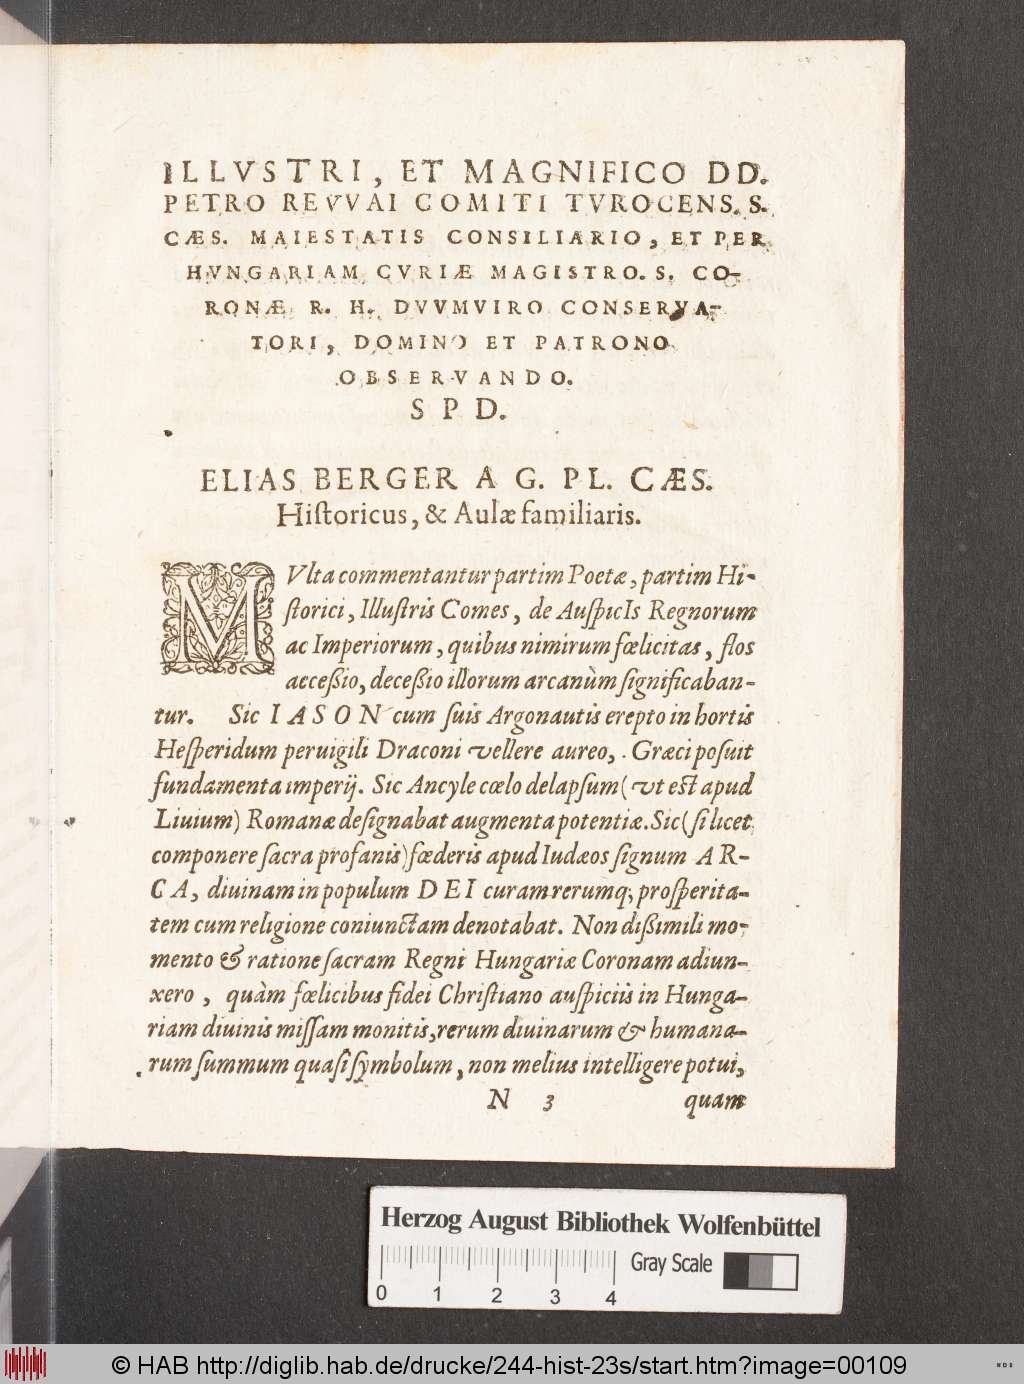 ILLVSTRI, ET MAGNIFICO DD.
PETRO REVVAI COMITI TVROCENS. S.
CÆS. MAIESTATIS CONSILIARIO, ET PER
HVNGARIAM CVRIÆ MAGISTRO. S. CO-
RONÆ R. H. DVVMVIRO CONSERVA-
TORI, DOMINO ET PATRONO
OBSERVANDO.
S P D.
ELIAS BERGER A G. PL. CÆS.
Hiſtoricus, & Aulæ familiaris.
MVlta commentantur partim Poetæ, partim Hi-
ſtorici, Illuſtris Comes, de AuſpicIs Regnorum
ac Imperiorum, quibus nimirum fœlicitas, flos
aeceßio, deceßio illorum arcanùm ſignificaban-
tur. Sic IASON cum ſuis Argonautis erepto in hortis
Heſperidum peruigili Draconi vellere aureo, . Græci poſuit
fundamenta imperij. Sic Ancyle cœlo delapſum (vt eſt apud
Liuium) Romanæ deſignabat augmenta potentiæ. Sic (ſi licet
componere ſacra profanis) fœderis apud Iudæos ſignum AR-
CA, diuinam in populum DEI curam rerumq; proſperita-
tem cum religione coniunctam denotabat. Non dißimili mo-
mento & ratione ſacram Regni Hungariæ Coronam adiun-
xero, quàm fœlicibus fidei Chriſtiano auſpiciis in Hunga-
riam diuinis miſſam monitis, rerum diuinarum & humana-
rum ſummum quaſi ſymbolum, non melius intelligere potui,
N 3 quam
Herzog August Bibliothek Wolfenbüttel
Gray Scale
0 1 2 3 4
© HAB http://diglib.hab.de/drucke/244-hist-23s/start.htm?image=00109